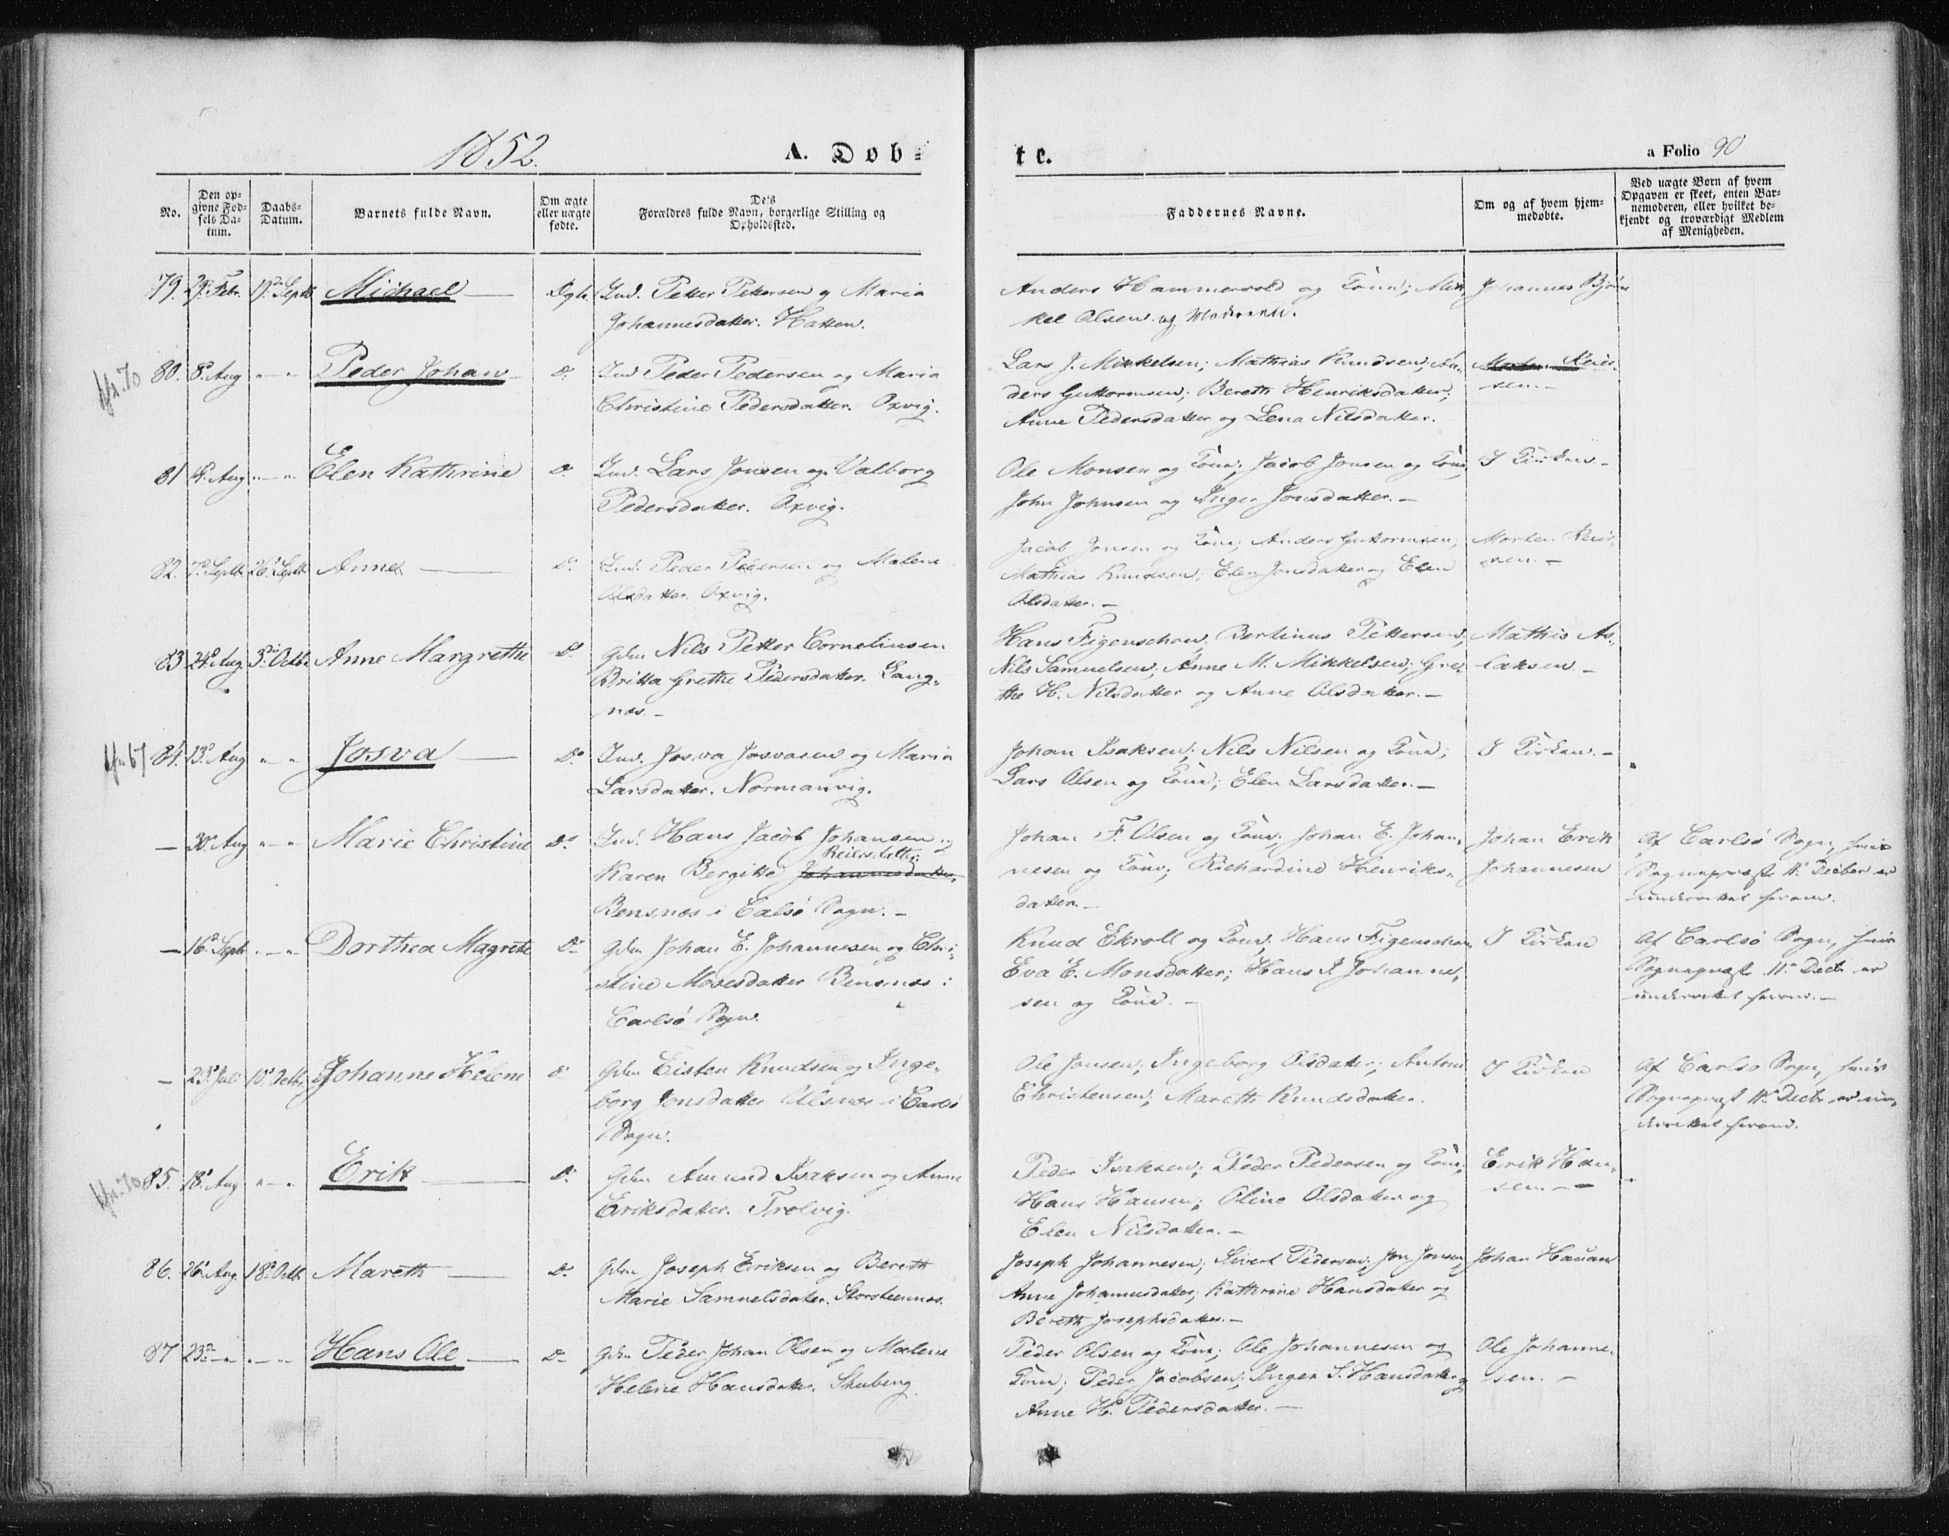 1852.
A. Døb=
te.
a Folio 90
No.
Den op-
givne Fød-
sels Da-
tum.
Daabs-
Datum.
Barnets fulde Navn.
Om ægte
eller uægte
fødte.
Dets
Forældres fulde Navn, borgerlige Stilling og
Opholdssted.
Faddernes Navne.
Om og af hvem hjem-
medøbte.
Ved uægte Børn af hvem
Opgaven er skeet, enten Bar-
nemoderen, eller hvilket be-
kjendt og troværdigt Medlem
af Menigheden.
79. 29 Febr. Sept Michael Ind. Petter Pettersen og Maria
Johannesdatter. Hatten.
Anders Hammervold og Kone; Mik-
kel Olsen og Moderen.
Johannes
80. 8 Aug " — " Peder Johan D° Ind Peder Pedersen og Maria
Christine Pedersdatter. Oxvig.
Lars J. Mikkelsen; Mathias Knudsen; An-
ders Guttormsen; Bereth Henriksdatter;
Anne Pedersdatter og Lena Nilsdatter.
Morten Reier-
sen. —
81 Aug " — " Elen Kathrine D° Ind. Lars Jonsen og Valborg
Pedersdatter. Oxvig.
Ole Monsen og Kone; Jacob Jonsen og Kone
John Johnsen og Inger Jonsdatter. —
I Kirken —
82. 7 Septb 26 Septb Anne D° Ind. Peder Pedersen og Malene
Olsdatter. Oxvig.
Jacob Jonsen og Kone; Anders Guttormsen;
Mathias Knudsen; Elen Jonsdatter og Elen
Olsdatter. —
Morten Reier-
sen. —
83 24 Aug 3 Octb Anne Margrethe D° Gdm Nils Petter Corneliusen
Britta Grethe Pedersdatter. Lang-
næs. —
Hans Figenschou; Bertinus Pettersen;
Nils Samuelsen; Anne M. Mikkelsen; Gre-
the H. Nilsdatter og Anne Olsdatter. —
Mathis As-
laksen —
84. 13 Aug " " Josva D° Ind. Josva Josvasen og Maria
Larsdatter. Normanvig.
Johan Isaksen; Nils Nilsen og Kone;
Lars Olsen og Kone; Elen Larsdatter. —
I Kirken. —
— 30 Aug " — " Marie Christine D° Ind. Hans Jacob Johansen og
Karen Bergitte Johannesdatter
Bensnæs i Calsø Sogn. —
Johan F. Olsen og Kone; Johan E. Johan-
nesen og Kone; Richardine Henriks-
datter. —
Johan Erik
Johannesen
Af Carlsø Sogn, hvis
Sognepræst 11 Decber er
underrettet herom.
— 16 Septb " — " Dorthea Magrete D° Gdm Johan E. Johannesen og Chri-
stine Mosesdatter Bensnæs i
Carlsø Sogn.
Knud Ekroll og Kone; Hans Figenschou
Eva E. Monsdatter; Hans J Johanne-
sen og Kone. —
I Kirken
Af Carlsø Sogn, hvis
Sognepræst 11 Decbr er
underrettet herom. —
— 23 Juli 10 Octb Johanne Helene D° Gdm Eisten Knudsen og Inge-
borg Jonsdatter Olsnæs i Carlsø
Sogn.
Ole Jonsen; Ingeborg Olsdatter; Anton
Christensen; Mareth Knudsdatter.
I Kirken
Af Carlsø Sogn, hvis
Sognepræst 11 Decbr er un-
derrettet herom.
85. 18 Aug " — " Erik D° Gdm Amund Isaksen og Anne
Eriksdatter. Trolvig.
Peder Isaksen; Peder Pedersen og Kone;
Hans Hansen; Oline Olsdatter og
Elen Nilsdatter. —
Erik Han-
sen. —
86. 26 Aug 18 Octb Mareth D° Gdm Joseph Eriksen og Bereth
Marie Samuelsdatter. Storsteennæs.
Joseph Johannesen; Sivert Pedersen; Jon Jonsen;
Anne Johannesdatter; Kathrine Hansdatter og
Bereth Josephsdatter. —
Johan
87 23 — " — " Hans Ole D° Gdm Peder Johan Olsen og Malene
Helene Hansdatter.
Peder Olsen og Kone; Ole Johannesen og
Kone; Peder Jacobsen; Inger S. Hansdatter og
Anne H. Pedersdatter. —
Ole Johanne-
sen. —